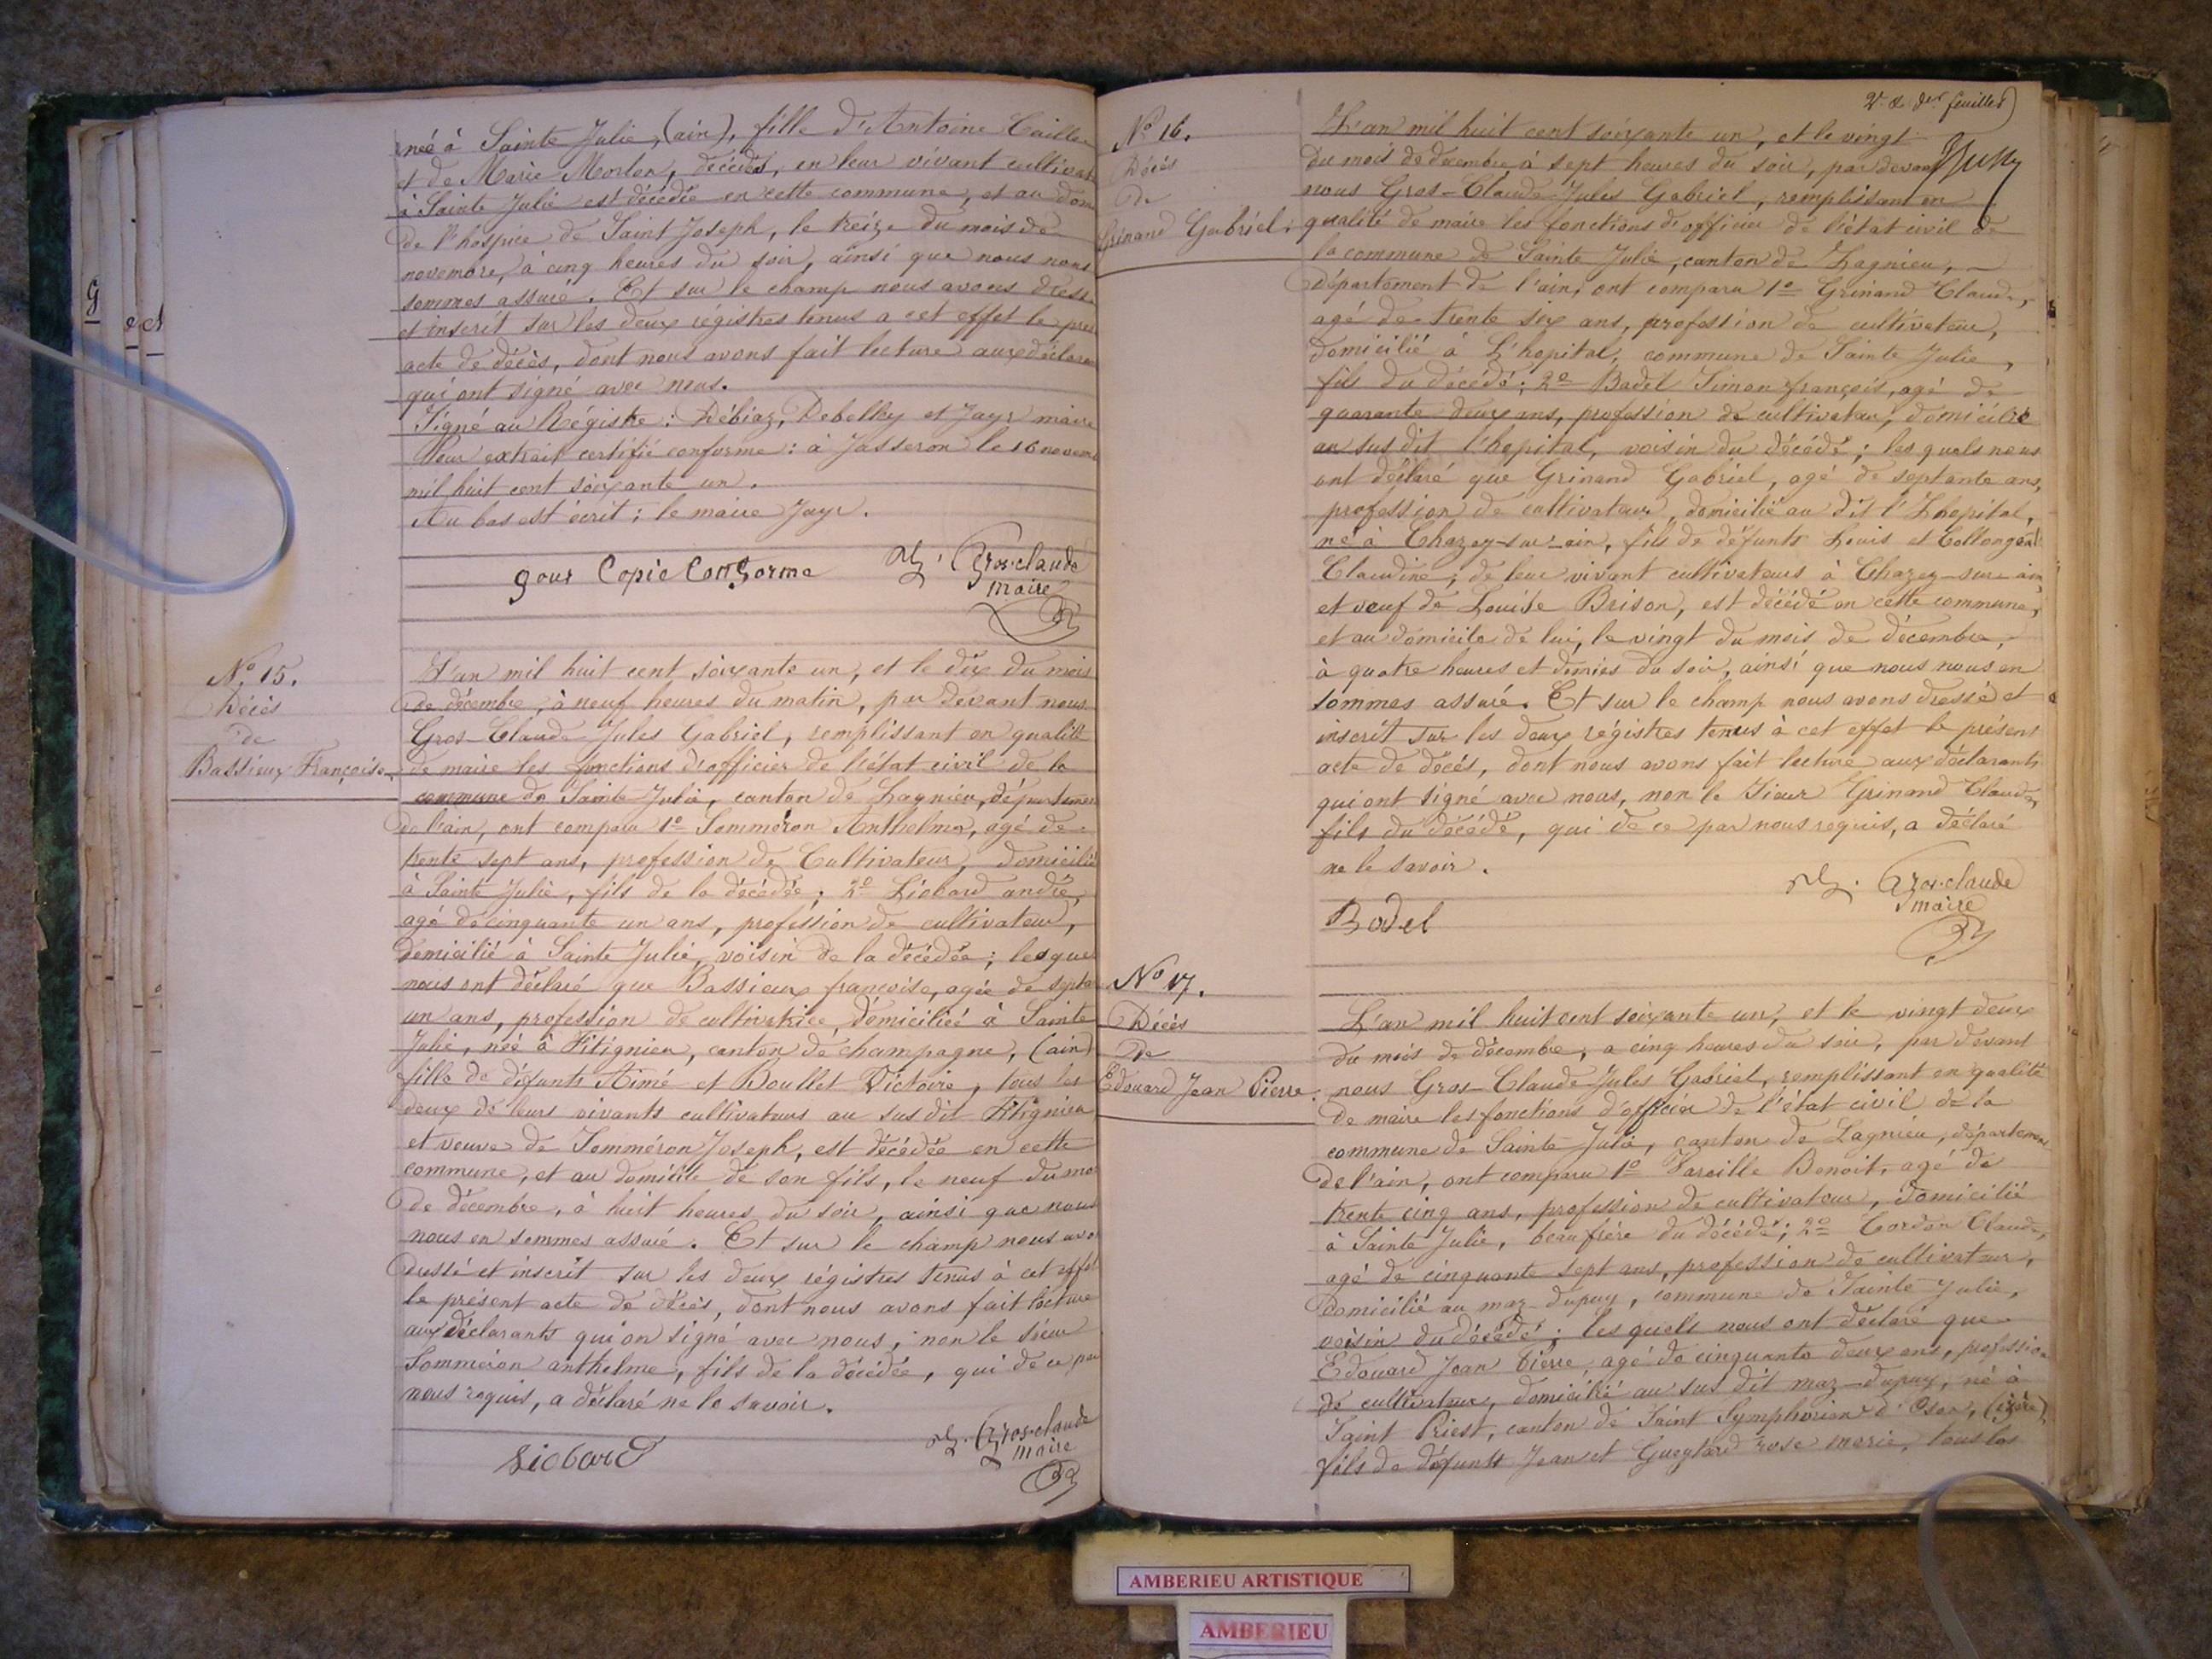 née à Sainte Julie, (ain), fille d'Antoine Caille
et de Marie Morlon, décédés, en leur vivant cultivat
à Sainte Julie est décédée en cette commune, et au dom
de l'hospice de Saint Joseph, le treize du mois de
novembre, à cinq heures du soir, ainsi que nous nous
sommes assuré. Et sur le champ nous avons dressé
et inscrit sur les deux régistres tenus a cet effet le pres
acte de décès, dont nous avons fait lecture aux déclara
qui ont signé avec nous.
Signé au Régistre: Débiaz, Debelky et Jayr maire
Pour extrait certifié conforme: à Jasseron le 16 novem
mil huit cent soixante un.
Au bas est écrit; le maire Jayr.
pour Copie Conforme
Gros-claude
maire
N° 15.
Décès
de
Bassieux Françoise
L'an mil huit cent soixante un, et le dix du mois
de décembre, à neuf heures du matin, par devant nous
Gros-Claude Jules Gabriel, remplissant en qualité
de maire les fonctions d'officier de l'état civil de la
commune de Sainte Julie, canton de Lagnieu, départemen
de l'ain, ont comparu 1° Sommeron Anthelme, agé de
trente sept ans, profession de Cultivateur, domicilié
à Sainte Julie, fils de la décédée; 2° Liobard andré,
agé de cinquante un ans, profession de cultivateur,
domicilié à Sainte Julie, voisin de la décédée; lesque
nous ont déclaré que Bassieux françoise, agée de septa
un ans, profession de cultivatrice, domiciliée à Sainte
Julie, née à Fitignieu, canton de champagne, (ain)
fille de défunts Aimé et Boullet Victoire, tous les
deux de leurs vivants cultivateurs au sus dit Fitignieu
et veuve de Sommeron Joseph, est décédée en cette
commune, et au domicile de son fils, le neuf du mo
de décembre, à huit heures du soir, ainsi que nous
nous en sommes assuré. Et sur le champ nous avo
dressé et inscrit sur les deux régistres tenus à cet effet
le présent acte de décès, dont nous avons fait lecture
aux déclarants qui on signé avec nous, non le sieur
Sommeron anthelme, fils de la décédée, qui de ce par
nous requis, a déclaré ne le savoir.
Liobard
Gros-claude
maire
2e & der feuillet
N° 16.
Décès
de
Grinand Gabriel.
L'an mil huit cent soixante un, et le vingt
du mois de décembre, à sept heures du soir, par devant
nous Gros-Claude Jules Gabriel, remplissant en
qualité de maire les fonctions d'officier de l'état civil de
la commune de Sainte Julie, canton de Lagnieu,
département de l'ain, ont comparu 1° Grinand Claude,
agé de trente six ans, profession de cultivateur,
domicilié à L'hopital, commune de Sainte Julie,
fils du décédé; 2° Badel Simon françois, agé de
quarante deux ans, profession de cultivateur, domicilié
au sus dit l'hopital, voisin du décédé; les quels nous
ont déclaré que Grinand Gabriel, agé de septante ans,
profession de cultivateur, domicilié au dit l'Lhopital,
né à Chazey-sur-ain, fils de défunts Louis et Collongeat
Claudine, de leur vivant cultivateurs à Chazey-sur-ain
et veuf de Louise Brison, est décédé en cette commune,
et au domicile de lui, le vingt du mois de décembre,
à quatre heures et demies du soir, ainsi que nous nous en
sommes assuré. Et sur le champ nous avons dressé et
inscrit sur les deux régistres tenus à cet effet le présent
acte de décés, dont nous avons fait lecture aux déclarants
qui ont signé avec nous, non le Sieur Grinand Claude,
fils du décédé, qui de ce par nous requis, a déclaré
ne le savoir.
Badel
Gros-claude
maire
N° 17.
Décès
de
Edouard Jean Pierre.
L'an mil huit cent soixante un, et le vingt deux
du mois de décembre, a cinq heures du soir, par devant
nous Gros-Claude Jules Gabriel, remplissant en qualité
de maire les fonctions d'officier de l'état civil de la
commune de Sainte Julie, canton de Lagnieu, départemen
de l'ain, ont comparu 1° Vareille Benoit, agé de
trente cinq ans, profession de cultivateur, domicilié
à Sainte Julie, beau frère du décédé; 2° Cordon Claude,
agé de cinquante sept ans, profession de cultivateur,
domicilié au maz-dupuy, commune de Sainte Julie,
voisin du décédé; les quels nous ont déclaré que
Edouard Jean Pierre agé de cinquante deux ans, profession
de cultivateur, domicilié au sus dit maz-dupuy, né à
Saint Priest, canton de Saint Symphorien d'Oson, (isère)
fils de défunts Jean et Gueytard rose marie, tous les
AMBERIEU ARTISTIQUE
AMBERIEU